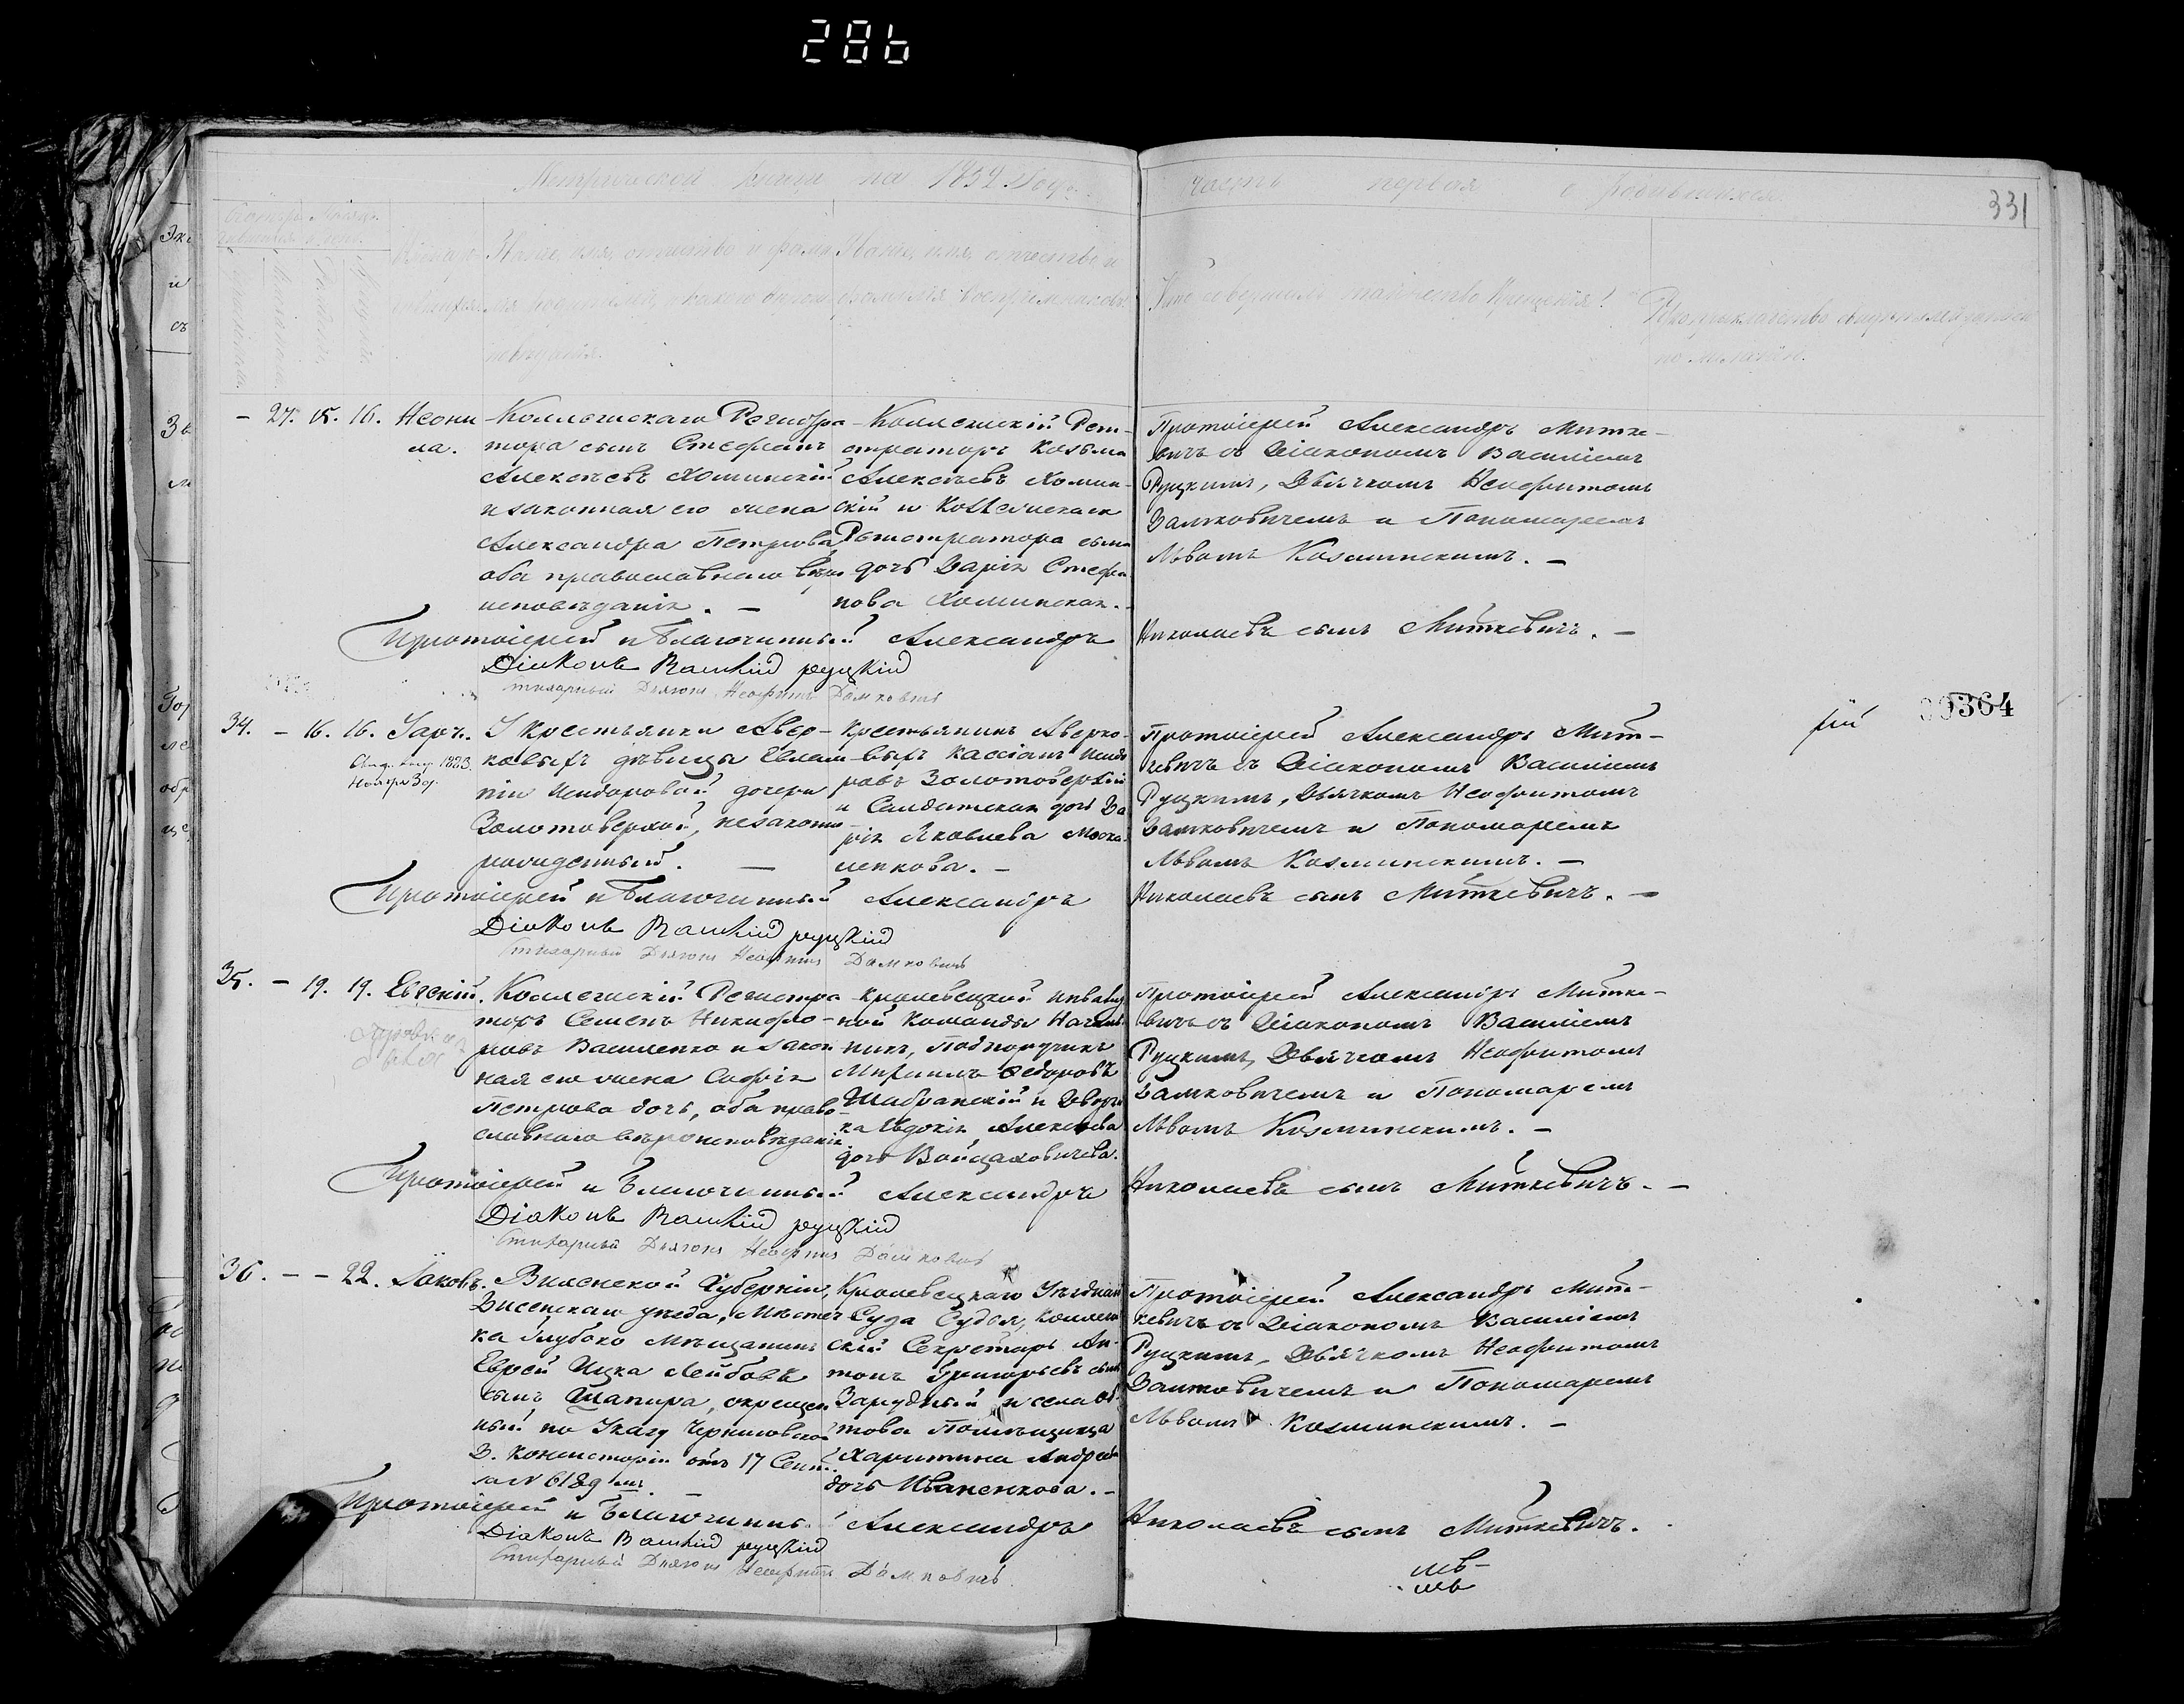 286
Метрической книги на 1852 Годъ.
часть первая о родившихся.
331
Званіе, имя, отчество и фами-
Званіе, имя, отчество и
фамилія воспріемниковъ.
Кто совершалъ таинство Крещенія?
Рукоприкладство свидетелей записи
по желанію.
- 27. 15. 16. Неони
ла.
Коллежскаго Регистра
тора сынъ Стефанъ
Алексѣевъ Хоминскій
и законная его жена
Александра Петрова
оба православнаго вѣро
исповѣданія. -
Коллежскій Реги-
страторъ Козьма
Алексѣевъ Хомин-
скій и Коллежскаго
Регистратора сына
дочь Дарія Стефа
нова Хоминская.
Протоіерей Александръ Митке-
вичъ съ Діакономъ Василіемъ
Руцкимъ, Дьячкомъ Неофитомъ
Дамковичемъ и Пономаремъ
Львомъ Козминскимъ. -
Протоіерей и Благочинный Александръ Николаевъ сынъ Миткевичъ. -
Діаконъ Василій Руцкій
Стихарный Дьячокъ Неофитъ Дамковичъ
00364
34. - 16. 16. Заръ.
1883.
Ноября 30.
У крестьянки Авер-
ковыхъ дѣвицы Евлам
піи Исидоровой дочери
Золотоверхой, незаконно
рожденный. -
Крестьянинъ Аверко-
выхъ Кассіанъ Исидо
ровъ Золотоверхій
и Солдатская дочь Да
рія Яковлева Моска
ленкова. -
Протоіерей Александръ Мит-
кевичъ съ Діакономъ Василіемъ
Руцкимъ, Дьячкомъ Неофитомъ
Дамковичемъ и Пономаремъ
Львомъ Козминскимъ. -
Протоіерей и Благочинный Александръ Николаевъ сынъ Миткевичъ. -
Діаконъ Василій Руцкій
Стихарный Дьячокъ Неофитъ Дамковичъ
35. - 19. 19. Евгеній.
Коллежскій Регистра
торъ Семенъ Никифо-
ровъ Василенко и закон
ная его жена Софія
Петрова дочь, оба право-
славнаго вѣроисповѣданія
Кролевецкой инвалид
ной Команды Началь
никъ, Подпоручикъ
Михаилъ Федоровъ
Шабранскій и Дворян
ка Евдокія Алексѣева
дочь Войцаховичева.
Протоіерей Александръ Митке-
вичъ съ Діакономъ Василіемъ
Руцкимъ, Дьячкомъ Неофитомъ
Дамковичемъ и Пономаремъ
Львомъ Козминскимъ. -
Протоіерей и Благочинный Александръ Николаевъ сынъ Миткевичъ. -
Діаконъ Василій Руцкій
Стихарный Дьячокъ Неофитъ Дамковичъ
36. - - 22. Іаковъ.
Виленской Губерніи,
Дисенскаго уезда, Мѣстеч
ка Глубоко Мѣщанинъ
Еврей Ицка Лейбовъ
сынъ Шапира, окрещен
ный по Указу Черниговской
Д. Консисторіи отъ 17 Сент.
за N 6189мъ. -
Кролевецкаго Уѣзднаго
Суда Судья, Коллеж
скій Секретарь Ан-
тонъ Григорьевъ сынъ
Зарудный и села
това Помѣщица
Харитина Андреева
дочь Иваненкова. -
Протоіерей Александръ Мит-
кевичъ съ Діакономъ Василіемъ
Руцкимъ, Дьячкомъ Неофитомъ
Дамковичемъ и Пономаремъ
Львомъ Козминскимъ. -
Протоіерей и Благочинный Александръ Николаевъ сынъ Миткевичъ.
Діаконъ Василій Руцкій
Стихарный Дьячокъ Неофитъ Дамковичъ